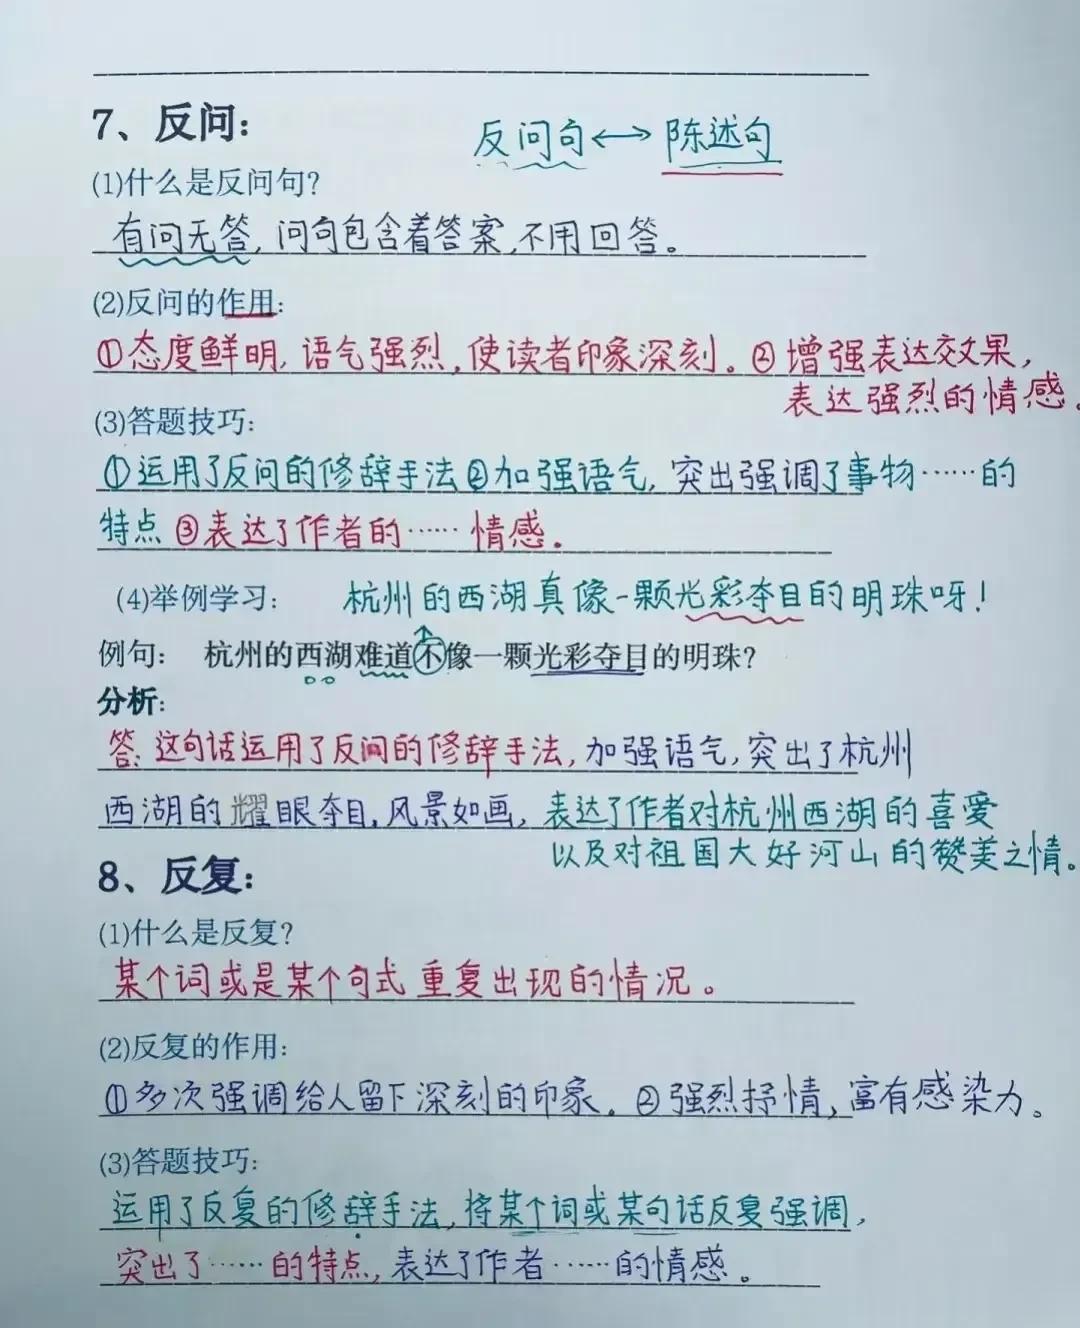 7、反问：
反问句↔陈述句
(1)什么是反问句？
有问无答，问句包含着答案，不用回答。
(2)反问的作用：
①态度鲜明，语气强烈，使读者印象深刻。②增强表达效果，
表达强烈的情感。
(3)答题技巧：
①运用了反问的修辞手法②加强语气，突出强调了事物……的
特点③表达了作者的……情感。
(4)举例学习： 杭州的西湖真像一颗光彩夺目的明珠呀！
例句： 杭州的西湖难道不像一颗光彩夺目的明珠？
分析：
答：这句话运用了反问的修辞手法，加强语气，突出了杭州
西湖的耀眼夺目，风景如画，表达了作者对杭州西湖的喜爱
以及对祖国大好河山的赞美之情。
8、反复：
(1)什么是反复？
某个词或是某个句式重复出现的情况。
(2)反复的作用：
①多次强调给人留下深刻的印象。②强烈抒情，富有感染力。
(3)答题技巧：
运用了反复的修辞手法，将某个词或某句话反复强调，
突出了……的特点，表达了作者……的情感。